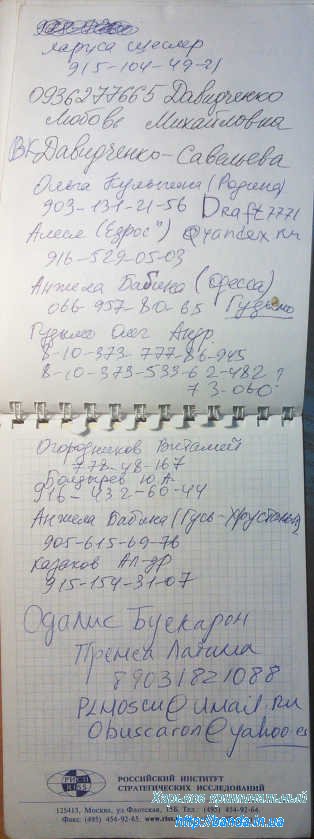 Лариса Щеслер
915-104-49-21
0936277665 Давидченко
Любовь Михайловна
ВК Давидченко-Савельева
Ольга Кулыгина (Родина)
903-131-21-56 Draft7771
Алеся (Едрос") @yandex.ru
916-529-05-03
Анжела Бабина (Одесса)
066-957-80-65 Гудымо
Гудымо Олег Андр.
8-10-373-777-86-945
8-10-373-533-62-482 ?
73-060
Огородников Виталий
778-48-167
Болдырев Ю.А.
916-432-60-44
Анжела Бабина (Гусь-Хрустальн)
905-615-69-76
Казаков Ал-др
915-154-31-07
Одалис Бускарон
Пренса Латина
89031821088
PLMOSCU@Mail.RU
Obuscaron@yahoo.es
РОССИЙСКИЙ ИНСТИТУТ
СТРАТЕГИЧЕСКИХ ИССЛЕДОВАНИЙ
125413, Москва, ул Флотская, 15Б, Тел. (495) 454-92-64,
Факс: (495) 454-92-65. www.riss
Харьков криминальный
http://banda.in.ua